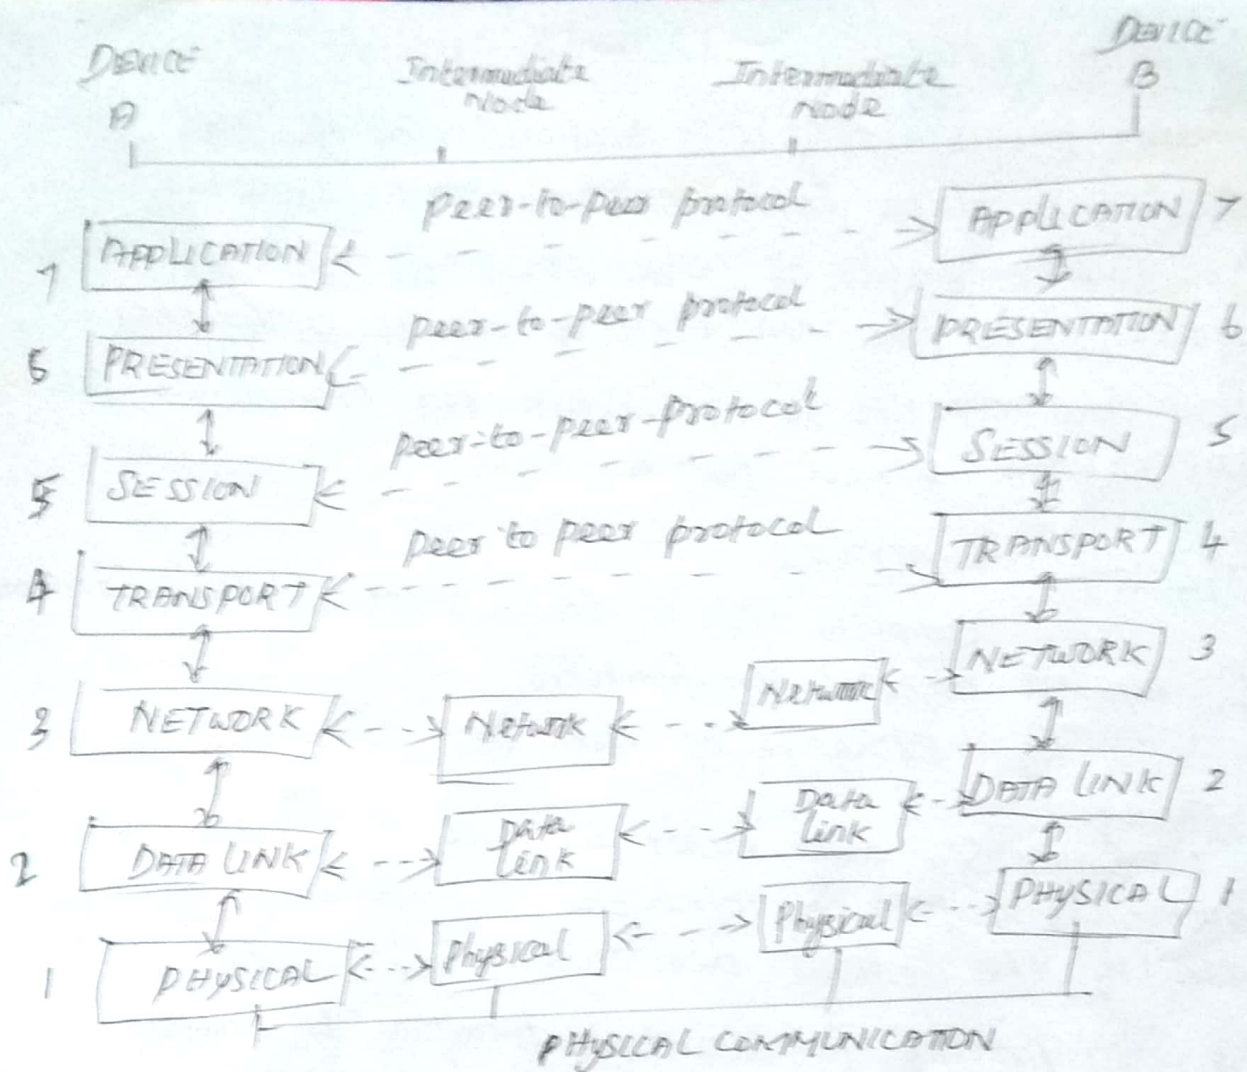 DEVICE
A
Intermediate
Node
Intermediate
Node
DEVICE
B
peer-to-peer protocol
7 APPLICATION
APPLICATION 7
peer-to-peer protocol
6 PRESENTATION
PRESENTATION 6
peer-to-peer-protocol
5 SESSION
SESSION 5
peer to peer protocol
4 TRANSPORT
TRANSPORT 4
3 NETWORK
Network
Network
NETWORK 3
2 DATA LINK
Data
link
Data
link
DATA LINK 2
1 PHYSICAL
Physical
Physical
PHYSICAL 1
PHYSICAL COMMUNICATION